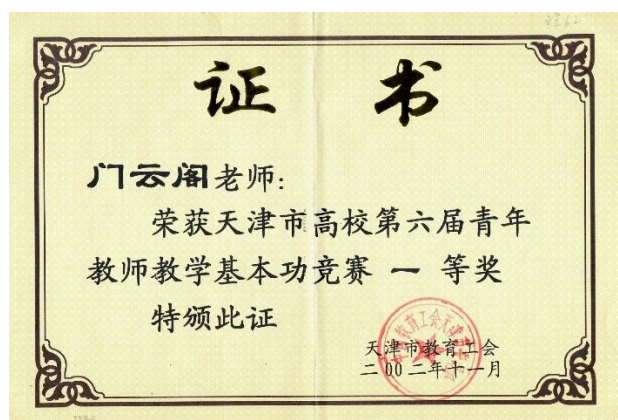 证 书
门云阁老师:
荣获天津市高校第六届青年
教师教学基本功竞赛 一 等奖
特颁此证
天津市教育工会
二00二年十一月